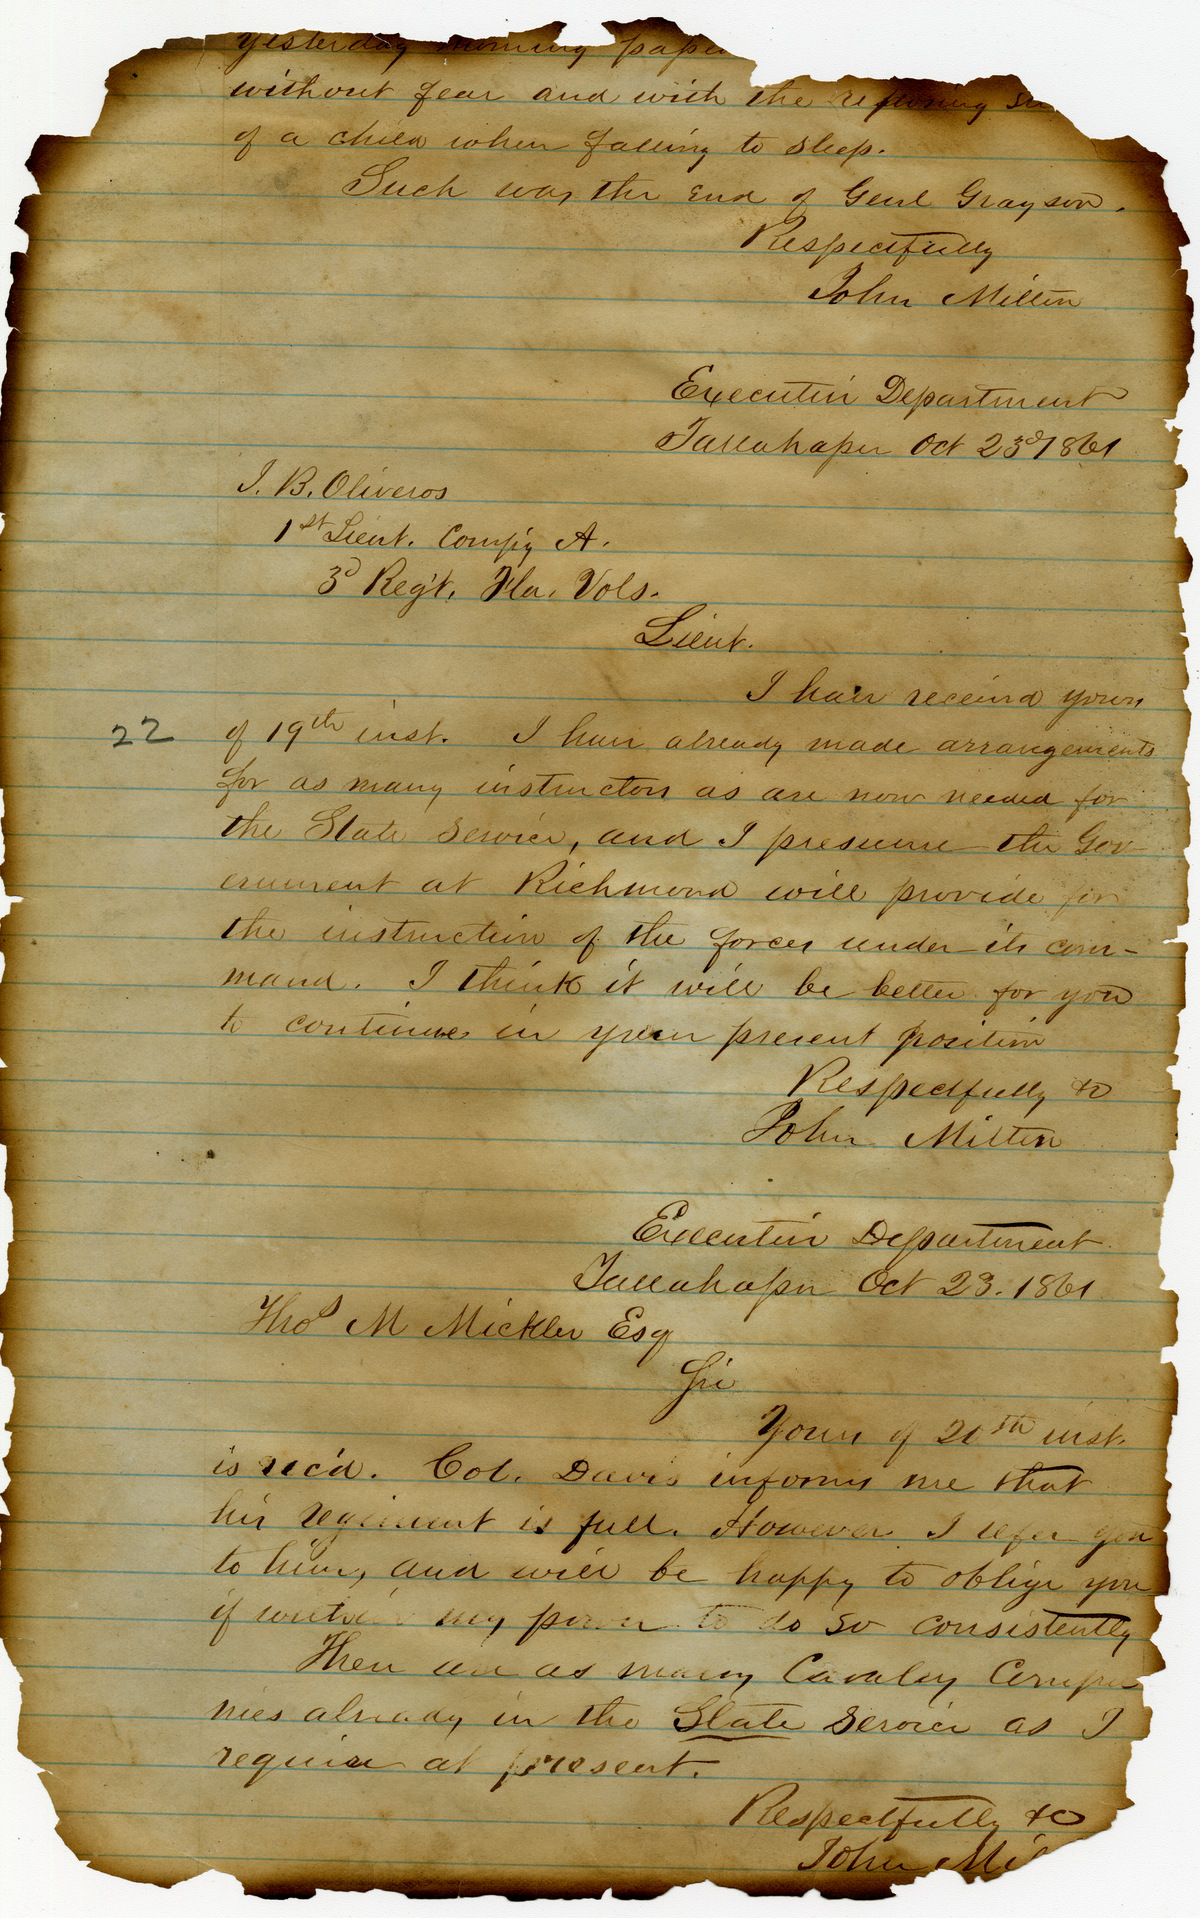 Yesterday morning
without fear and with the
of a child when falling to sleep.
Such was the End of Genl Grayson.
Respectfully
John Milton
Executive Department
Tallahassee Oct 23d 1861
J. B. Oliveros
1st Lieut. Comp'y A.
3d Reg't. Fla. Vols.
Lieut.
I have received yours
22
of 19th inst. I have already made arrangements
for as many instructors as are now needed for
the State Service, and I presume the Gov-
ernment at Richmond will provide for
the instruction of the forces under its com-
mand. I think it will be better for you
to continue in your present position
Respectfully &c
John Milton
Executive Department
Tallahassee Oct 23. 1861
Thos M Mickler Esq
Sir
Yours of 20th inst.
is rec'd. Col. Davis informs me that
his regiment is full. However I refer you
to him, and will be happy to oblige you
if within my power to do so consistently
There are as many Cavalry Compa
nies already in the State Service as I
require at present.
Respectfully &c
John Mi